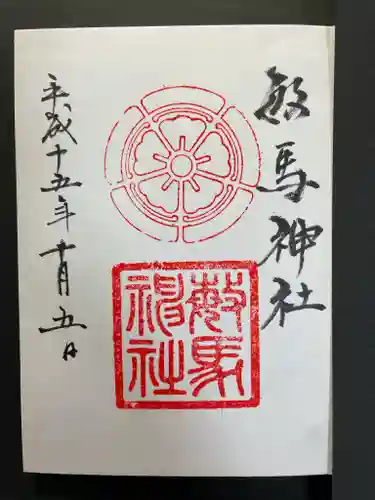 敏馬神社
敏馬神社
平成十五年十月五日